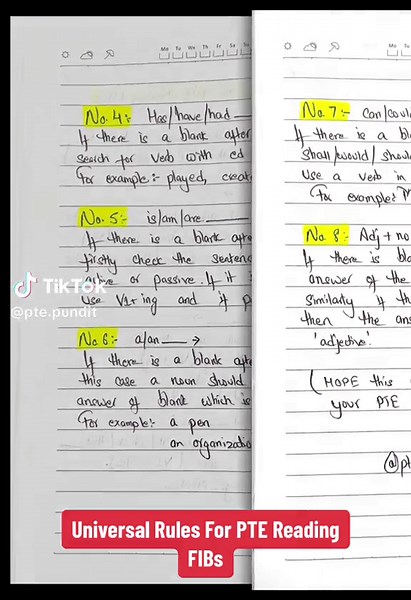 Mo Tu We Th Fr Sa Su
No. 4:- Has/have/had ____
If there is a blank after
search for verb with ed
For example:- played, creat
No. 5:- is/am/are ____
If there is a blank afte
firstly check the sentenc
active or passive. If it i
use V1+ing and if p
No 6:- a/an ____ →
If there is a blank afte
this case a noun should
answer of blank which is
For example:- a pen
an organizatio
No. 7:- can/coul
If there is a bl
shall/would/shoul
Use a verb in
For example:
No. 8:- Adj + no
If there is bla
answer of the
Similarly if th
then the ans
'adjective'.
(HOPE this
your PTE
@pt
TikTok
@pte.pundit
Universal Rules For PTE Reading
FIBs